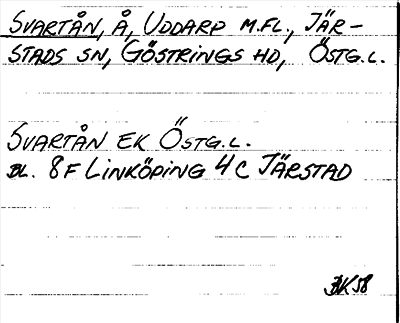 SVARTÅN, Å, UDDARP M.FL., JÄR-
STADS SN, GÖSTRINGS HD, ÖSTG.L.
SVARTÅN EK ÖSTG.L.
BL. 8F LINKÖPING 4C JÄRSTAD
BK58